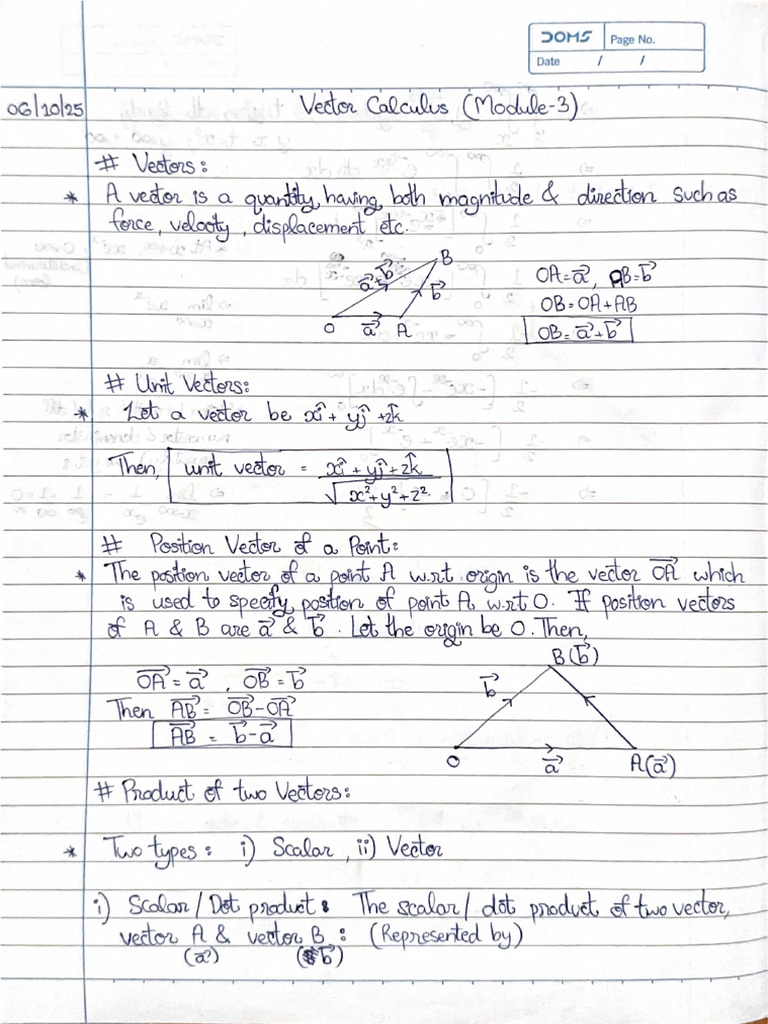 DOMS Page No.
Date / /
06/10/25 Vector Calculus (Module-3)
# Vectors:
* A vector is a quantity, having both magnitude & direction such as
force, velocity, displacement etc.
B
a⃗+b⃗
b⃗
O a⃗ A
OA=a⃗, AB=b⃗
OB=OA+AB
OB=a⃗+b⃗
# Unit Vectors:
* Let a vector be xî + yĵ + zk̂
Then, unit vector = (xî + yĵ + zk̂)/√(x²+y²+z²)
# Position Vector of a Point:
* The position vector of a point A w.r.t origin is the vector O͞A⃗ which
is used to specify position of point A w.r.t O. If position vectors
of A & B are a⃗ & b⃗. Let the origin be O. Then,
OA⃗ = a⃗, OB⃗ = b⃗
Then AB⃗ = OB⃗ - OA⃗
AB⃗ = b⃗ - a⃗
B(b⃗)
b⃗
O a⃗ A(a⃗)
# Product of two Vectors:
* Two types: i) Scalar, ii) Vector
i) Scalar/Dot product: The scalar/dot product of two vector,
vector A & vector B : (Represented by)
(a⃗) (b⃗)